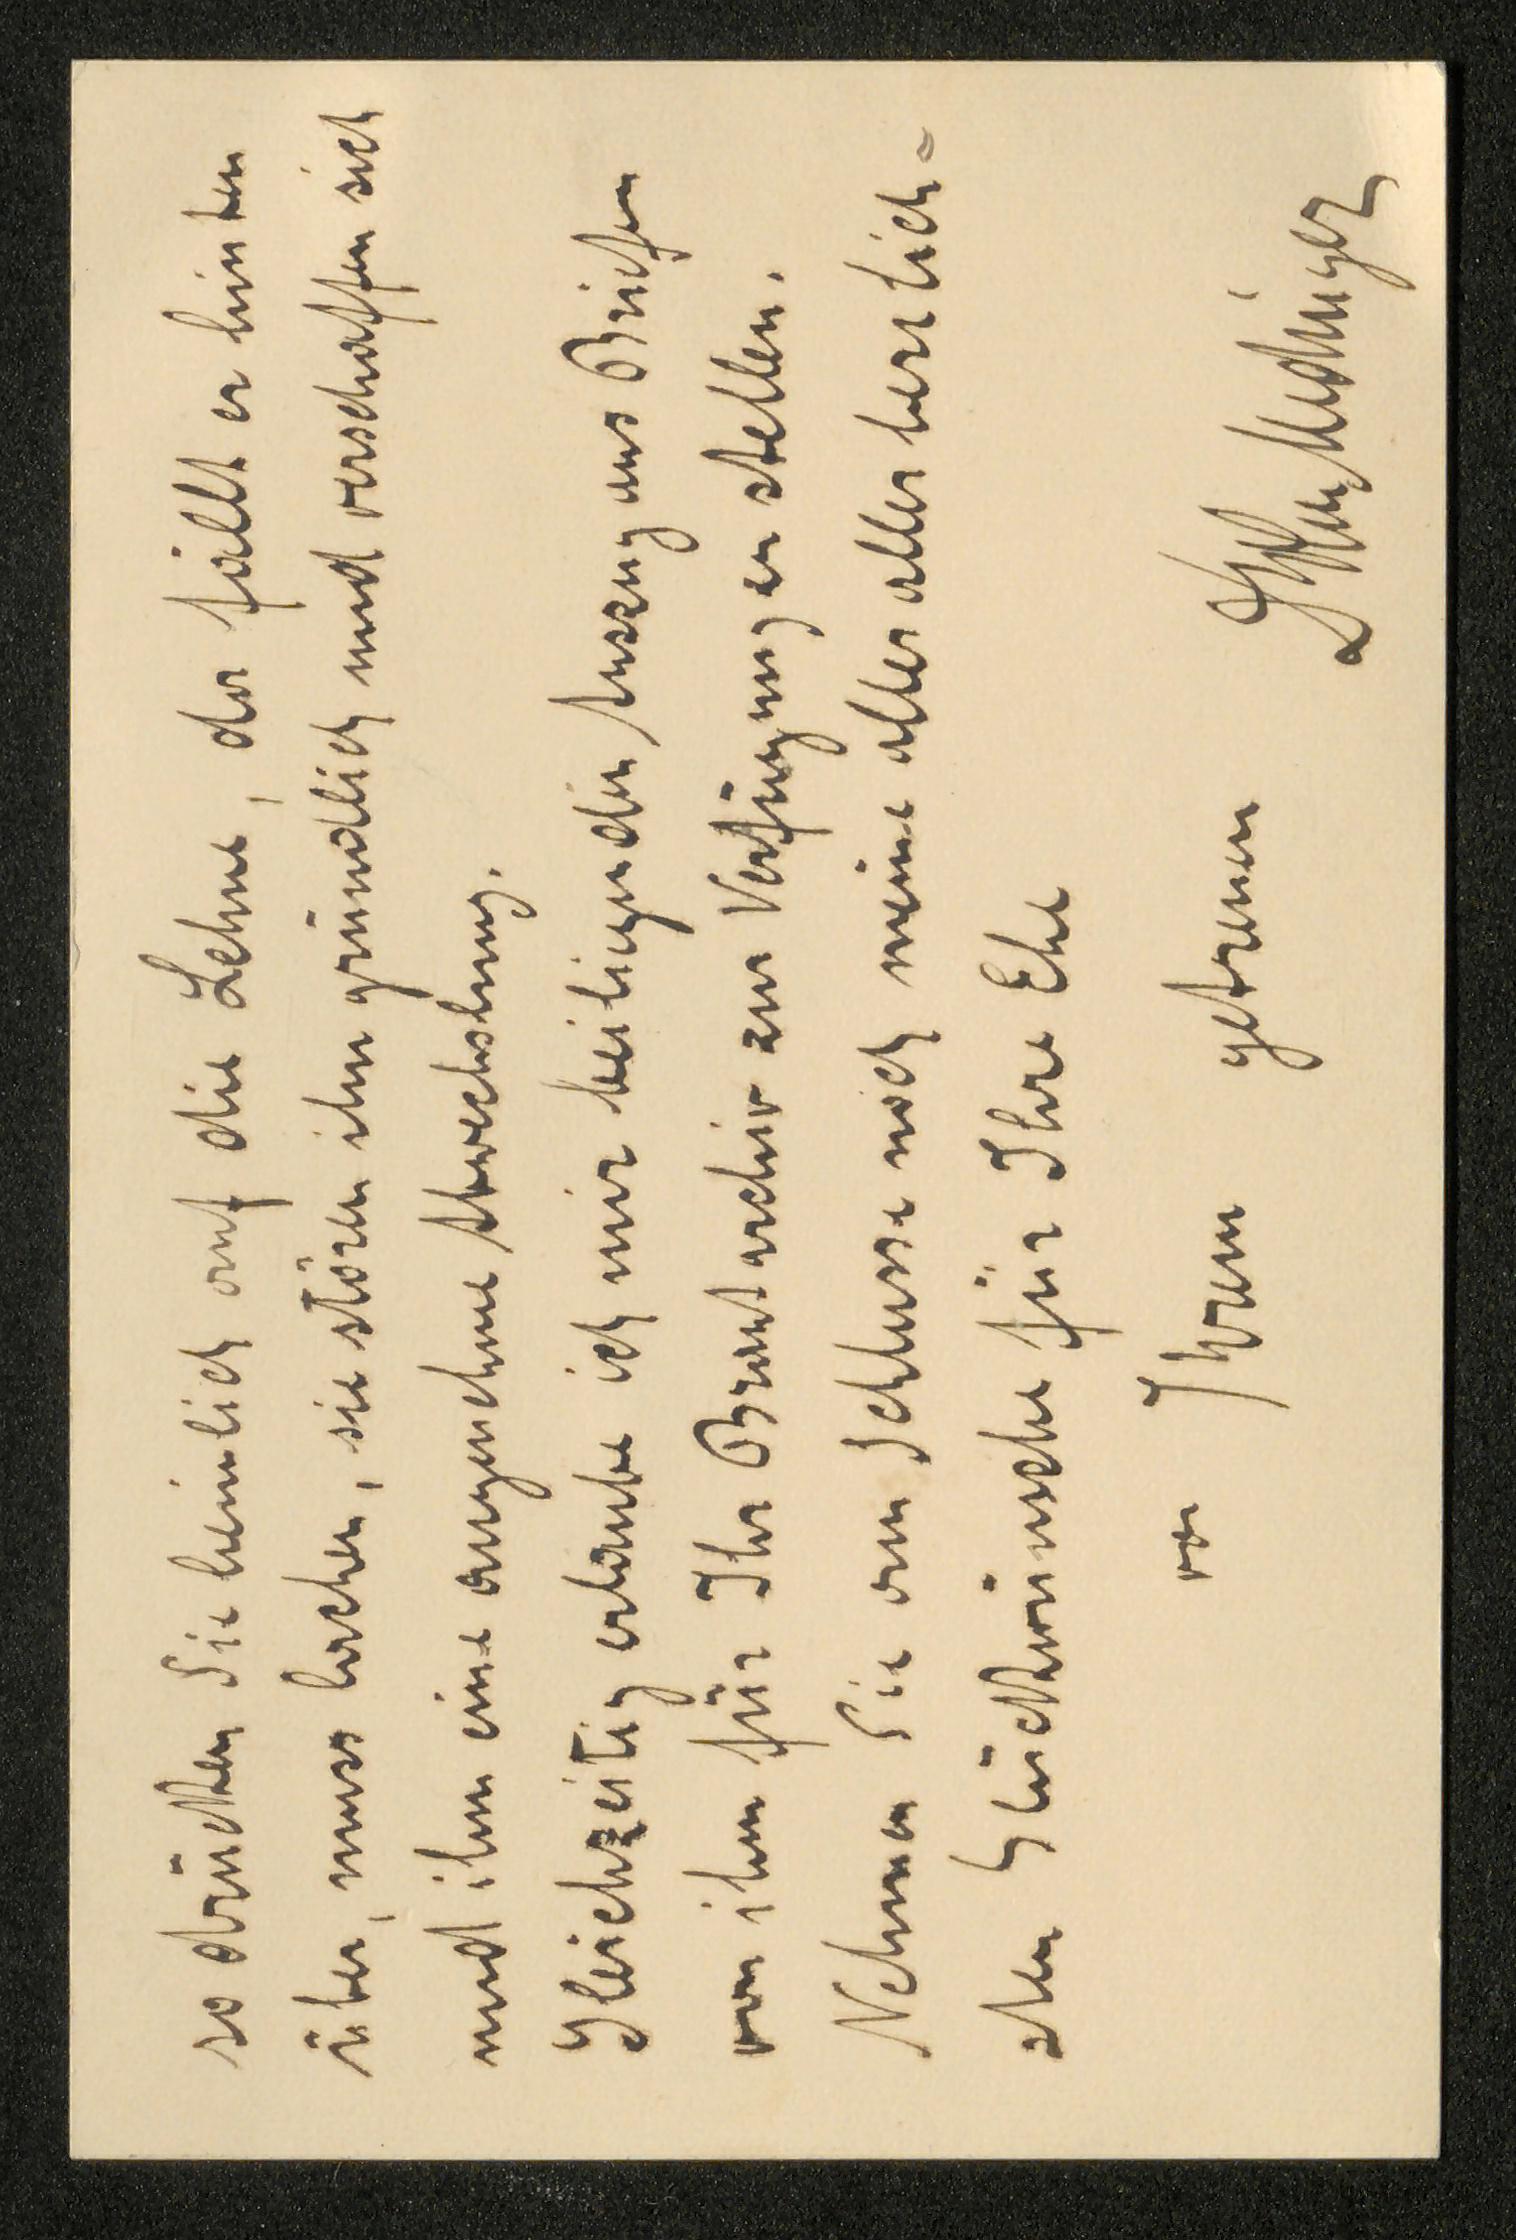 so drücken Sie heimlich auf die Lehne, da fällt er hinten
über, muss lachen, sie stören ihn gründlich und verschaffen sich
und ihm eine angenehme Abwechslung.
Gleichzeitig erlaube ich mir beiliegenden Auszug aus Briefen
von ihm für Ihr Brautarchiv zur Verfügung zu stellen.
Nehmen Sie am Schlusse noch meine aller aller herzlich-
sten Glückwünsche für Ihre Ehe
von Ihrem getreuen